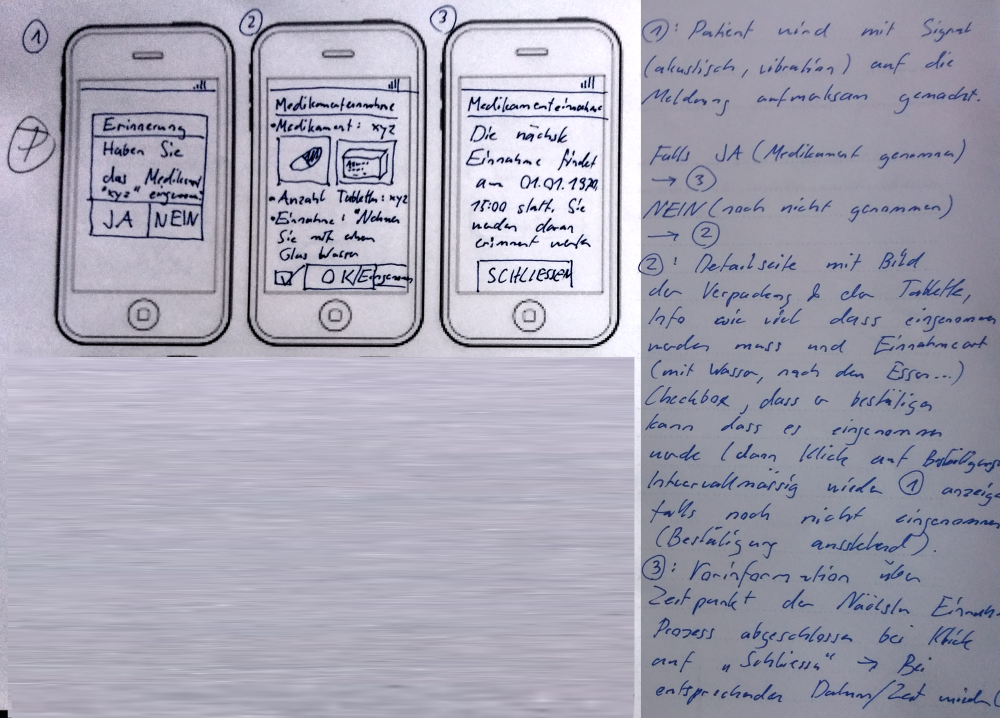 1
Erinnerung
Haben Sie
das Medikament
"xyz" eingenommen
JA NEIN
2
Medikamenteneinnahme
• Medikament: xyz
• Anzahl Tabletten: xyz
• Einnahme: "Nehmen
Sie mit einem
Glas Wasser
OK/Eingenommen
3
Medikamenteneinnahme
Die nächste
Einnahme findet
am 01.01.1970,
15:00 statt. Sie
werden daran
erinnert werden
SCHLIESSEN
①: Patient wird mit Signal
(akustisch, vibration) auf die
Meldung aufmerksam gemacht.
Falls JA (Medikament genommen)
→ ③
NEIN (noch nicht genommen)
→ ②
②: Detailseite mit Bild
der Verpackung & der Tablette,
Info wie viel dass eingenommen
werden muss und Einnahmeart
(mit Wasser, nach dem Essen...)
Checkbox, dass er bestätigen
kann dass es eingenommen
wurde (dann Klick auf
Intervallmässig wieder ① anzeige
falls noch nicht eingenommen
(Bestätigung ausstehend).
③: Vorinformation über
Zeitpunkt der Nächsten
Prozess abgeschlossen bei Klick
auf "Schliessen" → Bei
entsprechender Datum/Zeit wieder